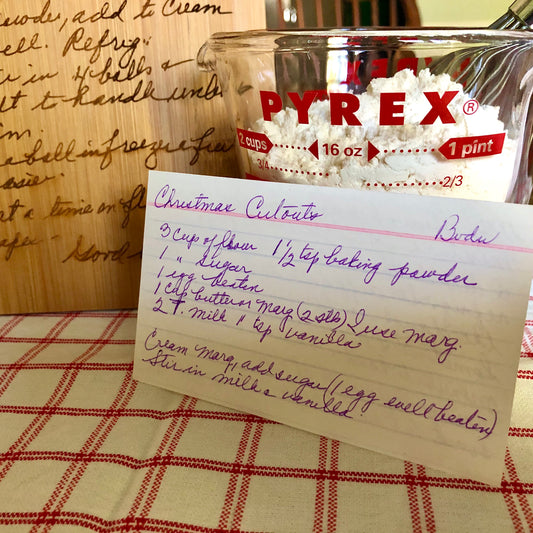 owder, add to Cream
ell. Refrig.
in 4 balls &
t to handle unti
m.
a ball in freezer a few
easier.
at a time on fl
Good
PYREX®
2 cups
16 oz
1 pint
3/4
2/3
Christmas Cutouts
3 cup of flour 1 1/2 tsp baking powder
1 " sugar
1 egg beaten
1 cup butter or marg (2 stks) I use marg.
2 T. milk 1 tsp vanilla
Cream marg, add sugar (1 egg well beaten)
Stir in milk & vanilla.